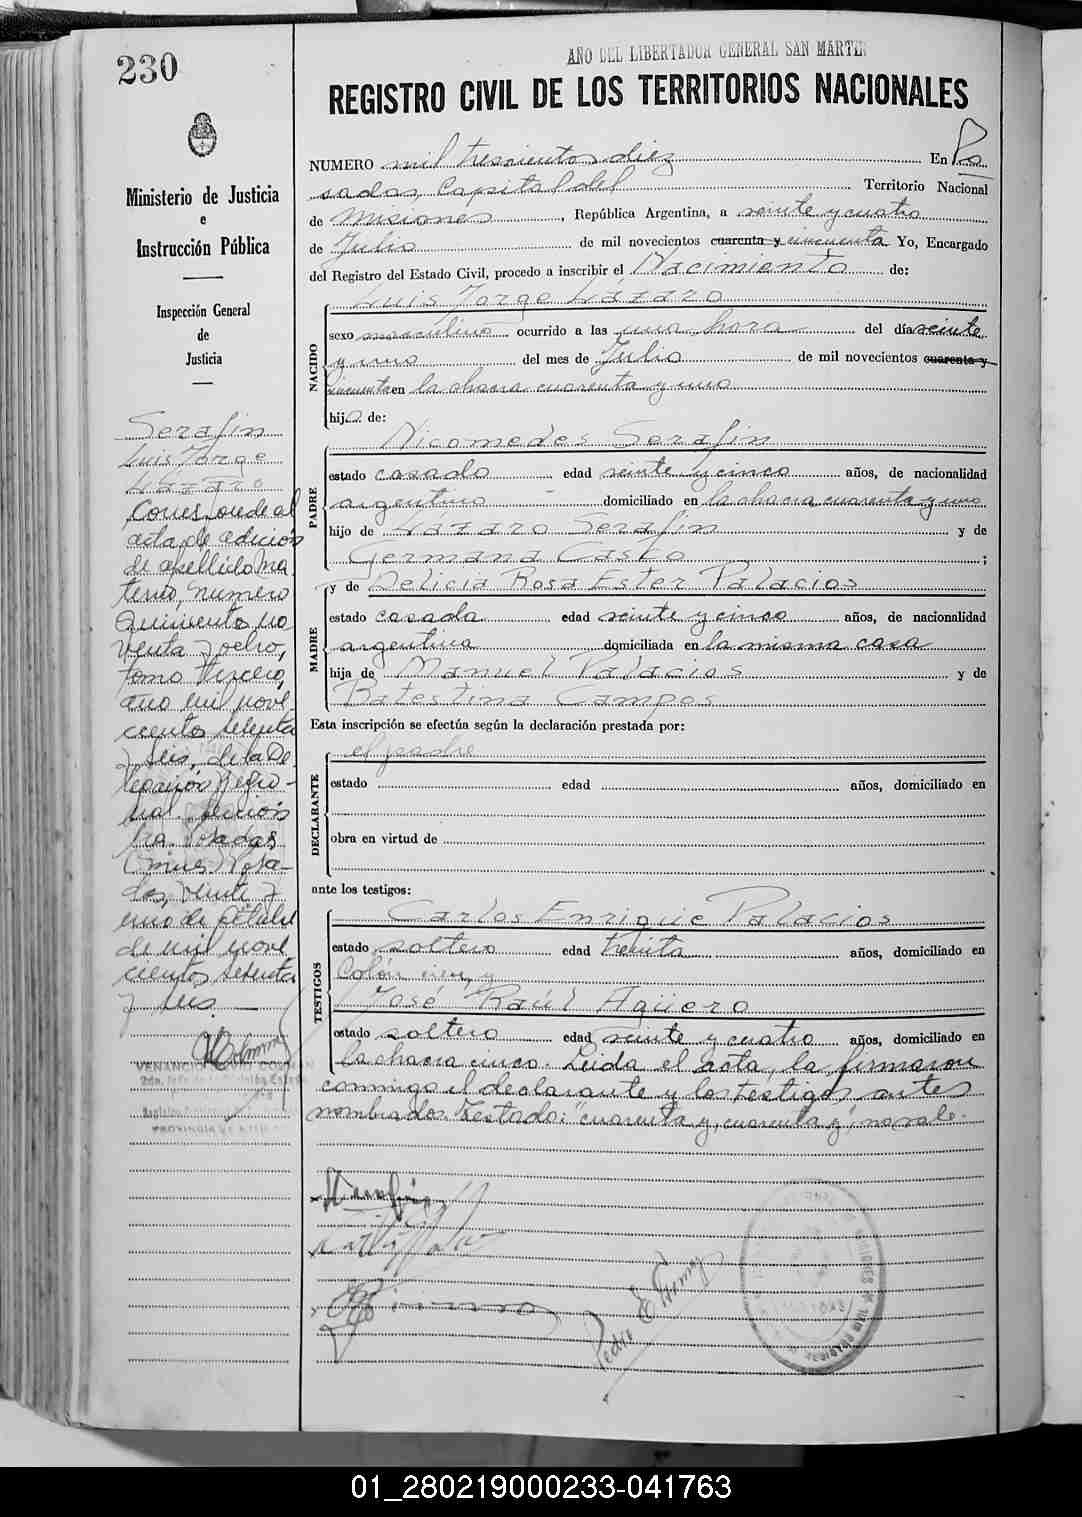 230
AÑO DEL LIBERTADOR GENERAL SAN MARTIN
REGISTRO CIVIL DE LOS TERRITORIOS NACIONALES
Ministerio de Justicia
e
Instrucción Pública
Inspección General
de
Justicia
Serafin
Luis Jorge
Lázaro
Corresponde al
acta de adición
de apellido ma
terno, número
quinientos no
venta y ocho,
tomo tercero,
año mil nove
cientos setenta
y seis, de la De
legación Regio-
nal
Posadas
Posa-
das, veinte y
uno de octubre
de mil nove
cientos setenta
y seis. —
VENANCIO
PROVINCIA DE
NUMERO mil trescientos diez En Po
sadas, Capital del Territorio Nacional
de Misiones, República Argentina, a veinte y cuatro
de Julio de mil novecientos cuarenta y cincuenta Yo, Encargado
del Registro del Estado Civil, procedo a inscribir el Nacimiento de:
Luis Jorge Lázaro
NACIDO
sexo masculino ocurrido a las una hora del día veinte
y uno del mes de Julio de mil novecientos cuarenta y
cincuenta en la chacra cuarenta y uno
hijo de:
Nicomedes Serafin
PADRE
estado casado edad veinte y cinco años, de nacionalidad
argentino domiciliado en la chacra cuarenta y uno
hijo de Lázaro Serafin y de
Germana Casco ;
y de Delicia Rosa Ester Palacios
MADRE
estado casada edad veinte y cinco años, de nacionalidad
argentina domiciliada en la misma casa
hija de Manuel Palacios y de
Batestina Campos
Esta inscripción se efectúa según la declaración prestada por:
el padre
DECLARANTE
estado edad años, domiciliado en
obra en virtud de
ante los testigos:
Carlos Enrique Palacios
TESTIGOS
estado soltero edad treinta años, domiciliado en
Colón cien, y
José Raúl Agüero
estado soltero edad veinte y cuatro años, domiciliado en
la chacra cinco. Leida el acta, la firmaron
conmigo el declarante y los testigos antes
nombrados. Testado: "cuarenta y, cuarenta y", no vale.
01_280219000233-041763